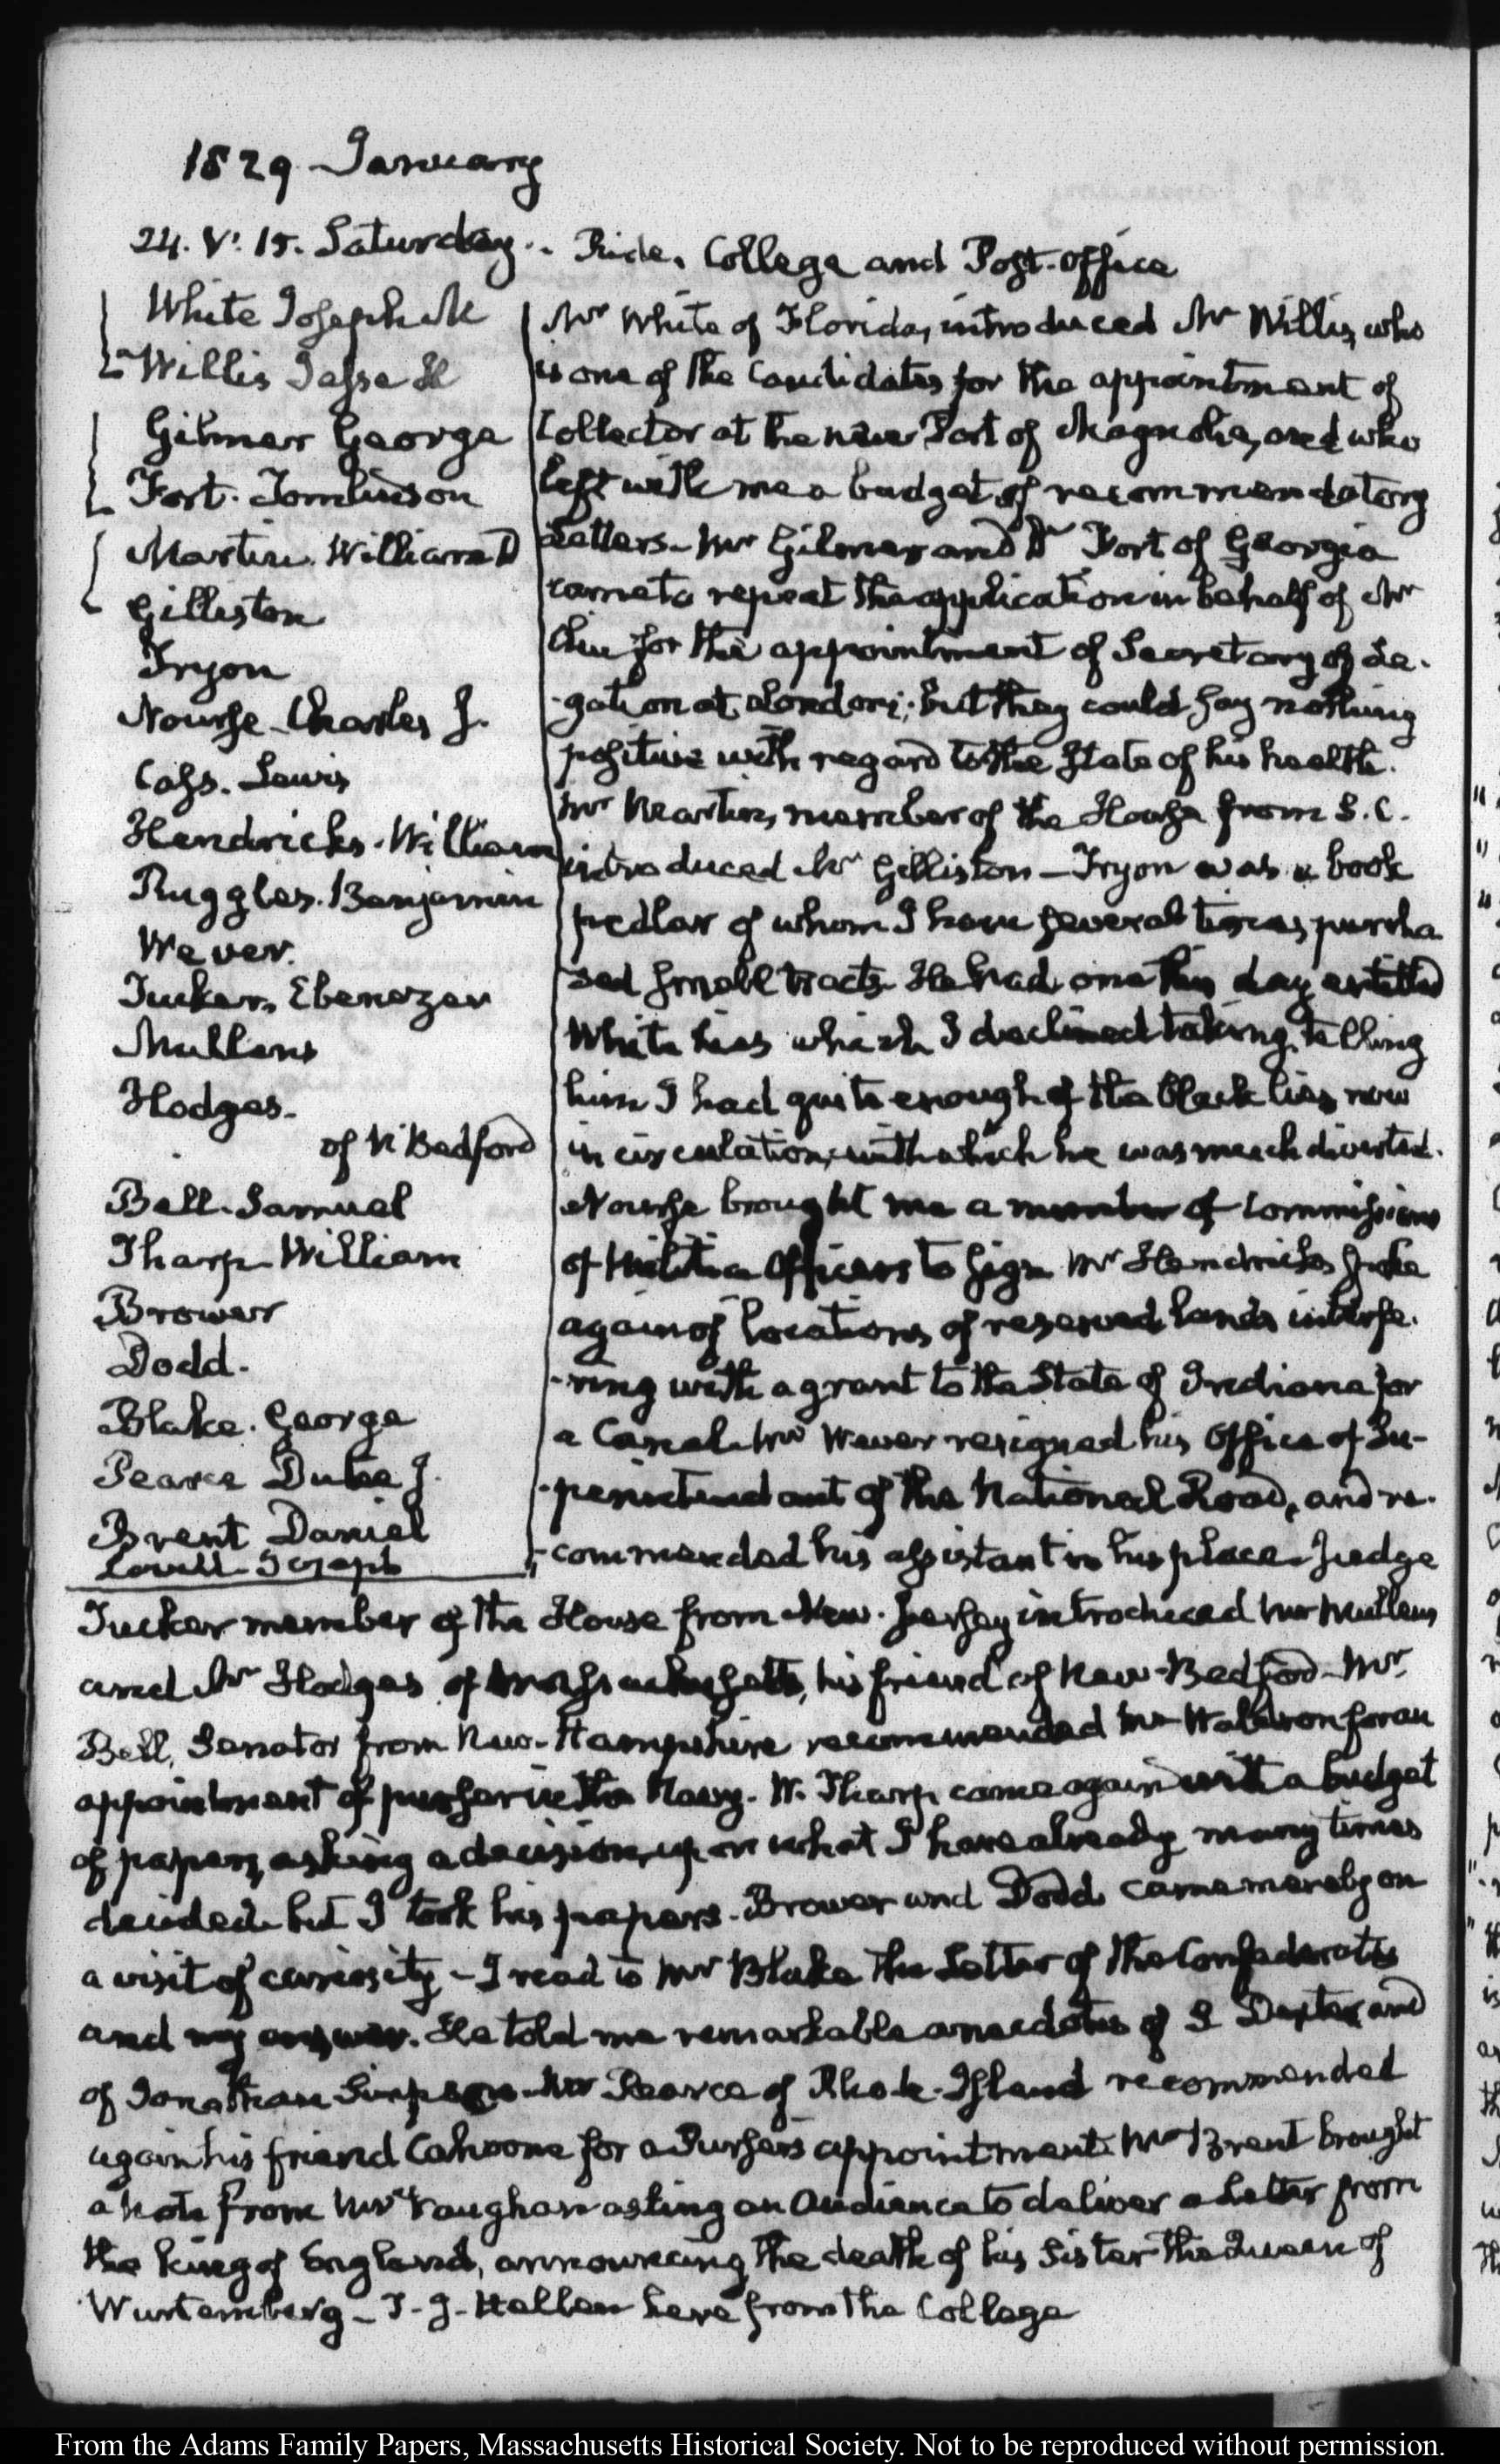 1829 January
24. V. 15. Saturday.. Ride. College and Post-office
White Joseph M
Willis Jesse H
Gilmer George
Fort. Tomlinson
Martin. William D
Gilliston
Tryon
Nourse. Charles J.
Cass. Lewis
Hendricks. William
Ruggles. Benjamin
Wever.
Tucker, Ebenezer
Mullens
Hodges.
of N. Bedford
Bell. Samuel
Tharp William
Brower
Dodd.
Blake. George
Pearce Dutee J.
Brent Daniel
Lovell Joseph
Mr White of Florida, introduced Mr Willis, who
is one of the Candidates for the appointment of
Collector at the new Port of Magnolia, and who
left with me a budget of recommendatory
Letters. Mr Gilmer and Dr Fort of Georgia
came to repeat the application in behalf of Mr
for the appointment of Secretary of Le-
-gation at London; but they could say nothing
positive with regard to the state of his health.
Mr Martin, member of the House from S.C.
introduced Mr Gilliston - Tryon was a book
pedlar of whom I have several times purcha
sed small tracts. He had one this day entitled
White lies which I declined taking, telling
him I had quite enough of the black lies now
in circulation, with which he was much diverted.
Nourse brought me a number of Commissions
of Militia Officers to sign. Mr Hendricks spoke
again of locations of reserved lands interfe-
-ring with a grant to the State of Indiana for
a Canal. Mr Wever resigned his Office of Su-
-perintendant of the National Road, and re-
-commended his assistant in his place. Judge
Tucker member of the House from New-Jersey introduced Mr Mullens
and Mr Hodges of Massachusetts, his friend of New-Bedford. Mr
Bell, Senator from New-Hampshire recommended Mr Waldron for an
appointment of purser in the Navy. W. Tharp came again with a budget
of papers, asking a decision, upon what I have already many times
decided. but I took his papers. Brower and Dodd came merely on
a visit of curiosity - I read to Mr Blake the Letter of the Confederates
and my answer. He told me remarkable anecdotes of S Dexter and
of Jonathan Simpson. Mr Pearce of Rhode-Island recommended
again his friend Cahoone for a Pursers appointment. Mr Brent brought
a Note from Mr Vaughan asking an Audience to deliver a Letter from
the king of England, announcing the death of his Sister the Queen of
Wurtemberg - T. J. Hellen here from the College
From the Adams Family Papers, Massachusetts Historical Society. Not to be reproduced without permission.